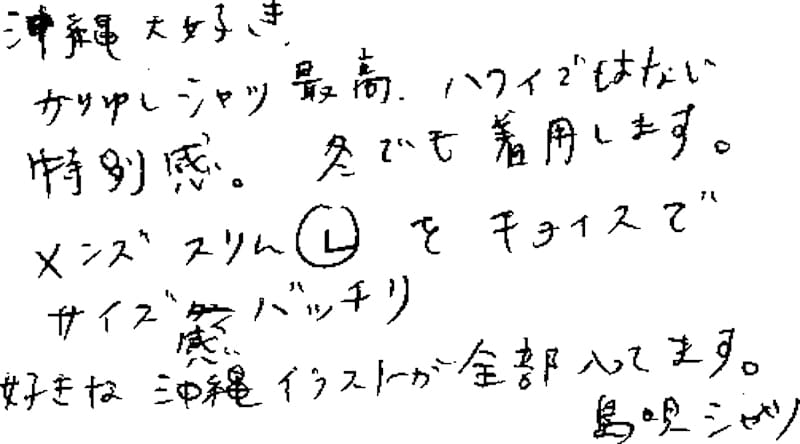 沖縄大好き
かりゆしシャツ最高.ハワイではない
特別感。冬でも着用します。
メンズスリムⓁをチョイスで
サイズ感バッチリ
好きな沖縄イラストが全部入てます。
島唄シャツ